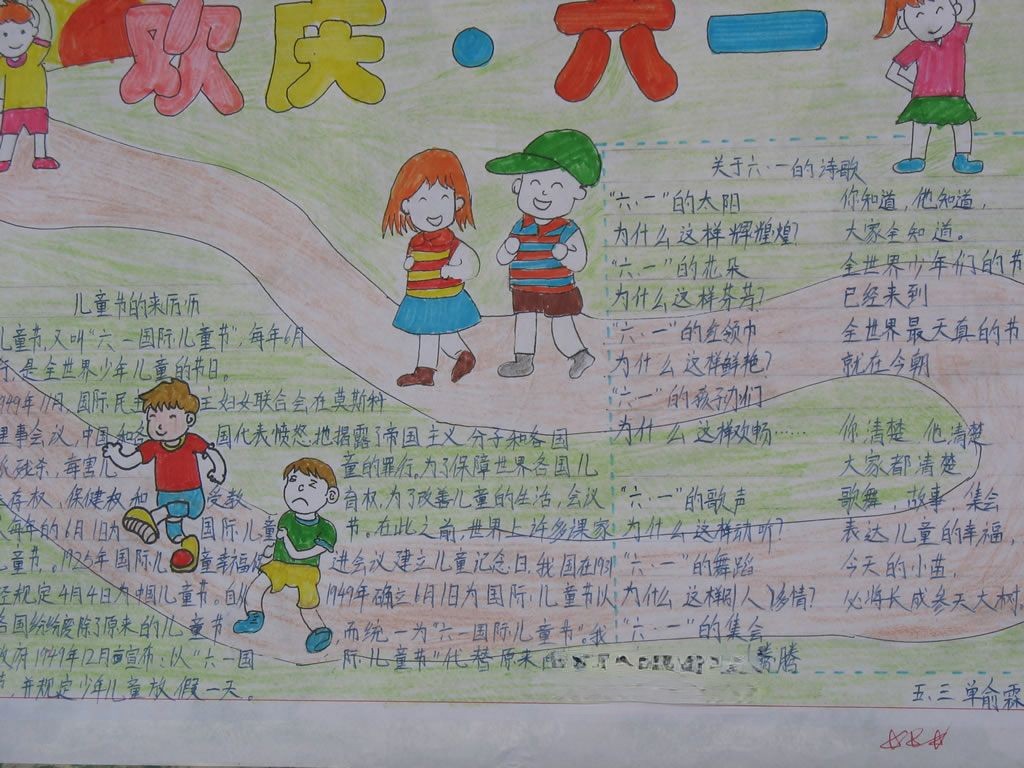 欢庆·六一
儿童节的来历师
儿童节,又叫"六一国际儿童节",每年6月
是全世界少年儿童的节日。
1949年11月,国际民主妇女联合会在莫斯科
理事会议,中国和各国代表愤怒地揭露了帝国主义分子和各国
残杀,毒害儿童的罪行。为了保障世界各国儿
存权,保健权和受教育权,为了改善儿童的生活,会议
每年的6月1日为国际儿童节。在此之前,世界上许多课家
儿童节。1925年国际儿童幸福促进会议建立儿童记念日,我国在1931
经规定4月4日为中国儿童节。自从1949年确立6月1日为国际儿童节以
各国纷纷废除了原来的儿童节而统一为"六一国际儿童节"。我
政府1949年12月宣布:以"六一国际儿童节"代替原来
并规定少年儿童放假一天。
关于六·一的诗歌
"六·一"的太阳
为什么这样辉煌煌?
"六·一"的花朵
为什么这样芬芳?
"六·一"的红领巾
为什么这样鲜艳?
"六·一"的孩子们
为什么这样欢畅……
"六·一"的歌声
为什么这样动听?
"六·一"的舞蹈
为什么这样引人多情?
"六·一"的集会
腾
你知道,他知道,
大家全知道。
全世界少年们的节
已经来到
全世界最天真的节
就在今朝
你清楚他清楚
大家都清楚
歌舞,故事,集会
表达儿童的幸福,
今天的小苗,
必将长成参天大树。
五.三单俞霖